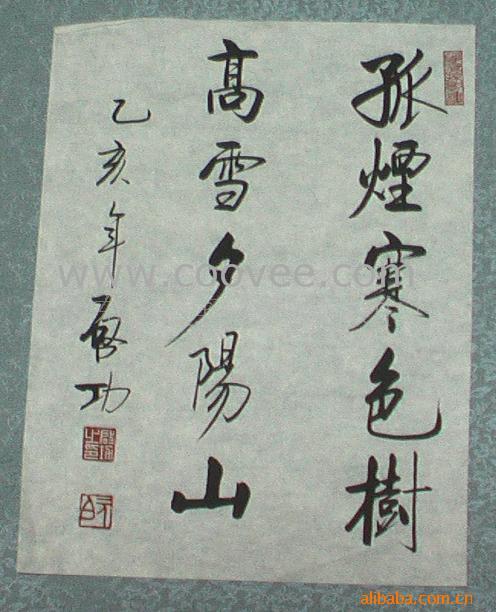 孤煙寒色樹
高雪夕陽山
乙亥年 啓功
www.coovee.com
alibaba.com.cn